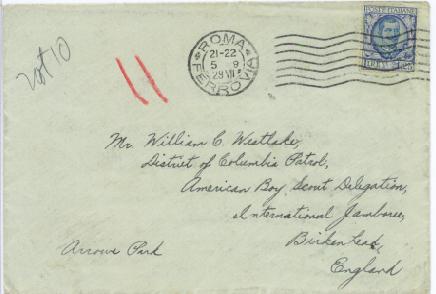 Lot 10
11
ROMA
21-22
5 9
29 VII
FERROVIA
POSTE ITALIANE
Mr. William C. Westlake,
District of Columbia Patrol,
American Boy Scout Delegation,
International Jamboree,
Birkenhead,
Arrowe Park
England